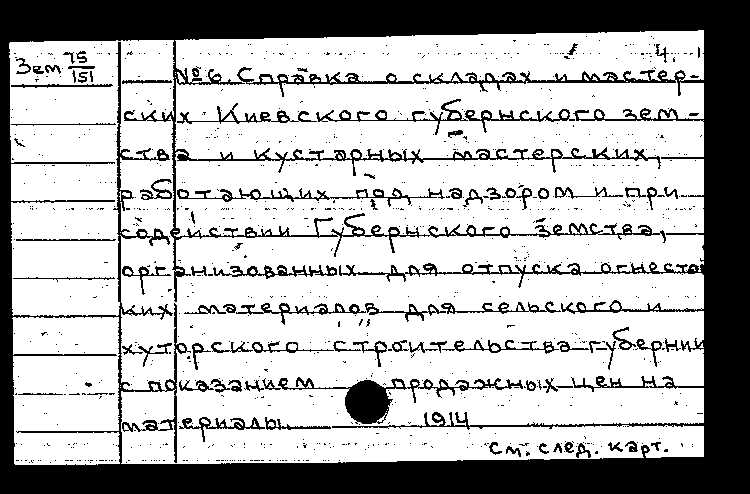 4. 1
Зем 75/151
№6. Справка о складах и мастер-
ских Киевского губернского зем-
ства и кустарных мастерских,
работающих под надзором и при
содействии Губернского земства,
организованных для отпуска огнестой
ких материалов для сельского и
хуторского строительства губернии
с показанием продажных цен на
материалы. 1914.
См. след. карт.